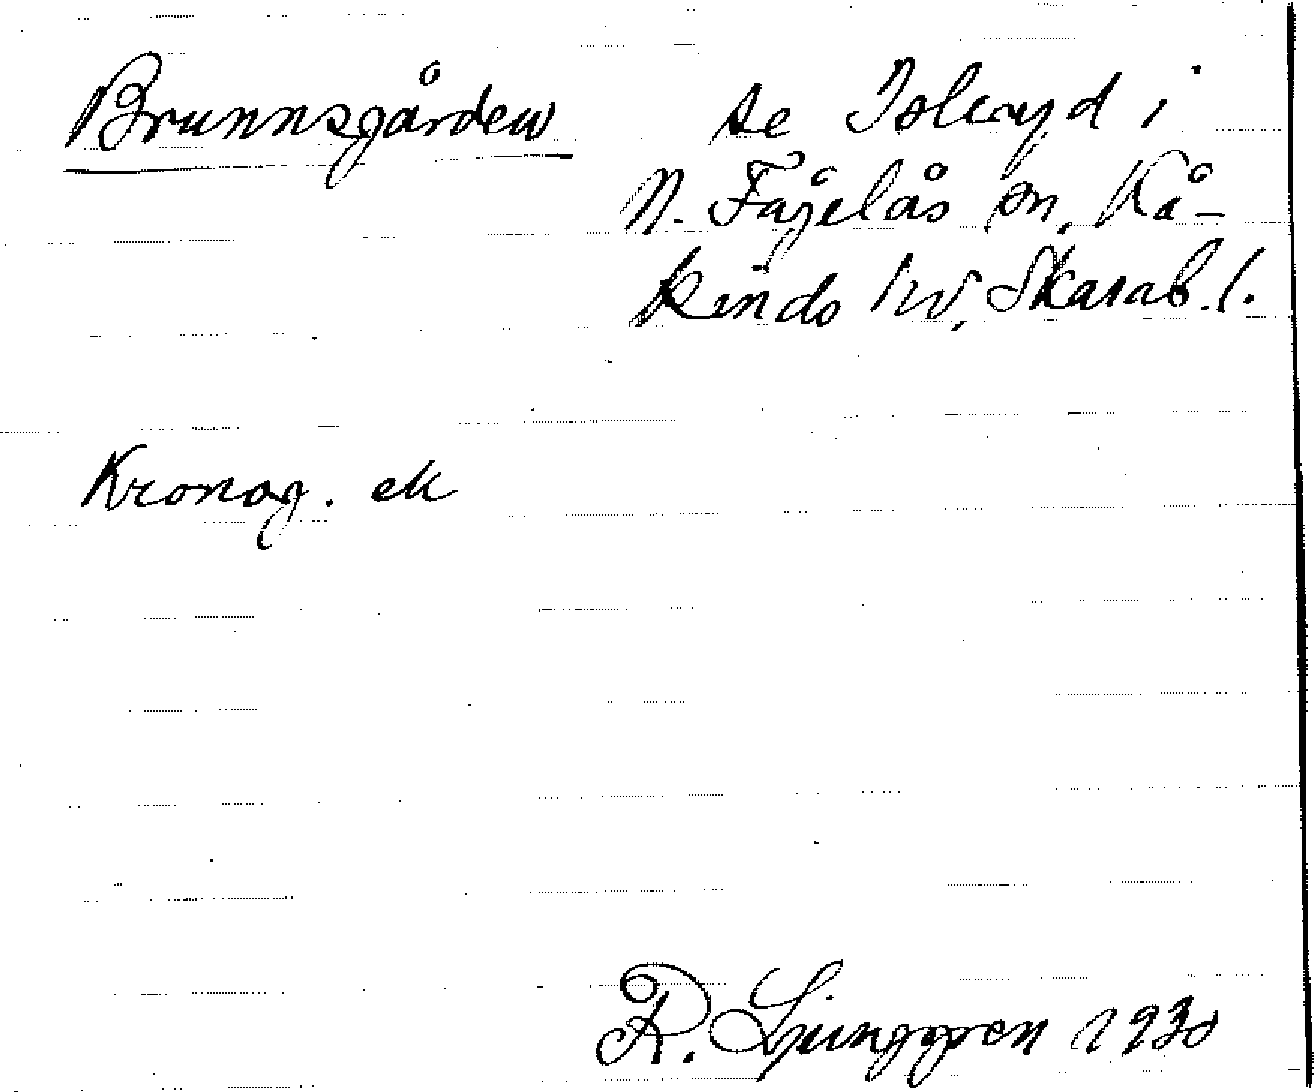 Brunnsgården se Isleryd i
N. Fågelås sn, Kå-
kinds hd, Skarab. l.
Kronog. ek
R. Ljunggren 1930